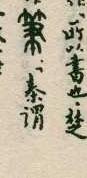 所以書也、楚
筆、秦謂